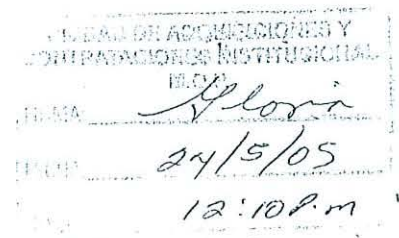 UNIDAD DE ADQUISICIONES Y
CONTRATACIONES INSTITUCIONAL
FIRMA: Gloria
FECHA: 24/5/05
12:10 P.m